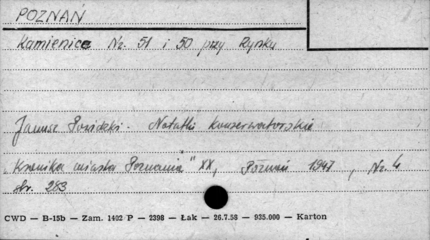 POZNAŃ
Kamienice Nr. 51 i 50 przy Rynku
Janusz Powidzki. Notatki konserwatorskie
"Kronika miasta Poznania" XX, Poznań 1947, Nr. 4
str. 283
CWD — B-15b — Zam. 1402 P — 2398 — Łak — 26.7.56 — 935.000 — Karton